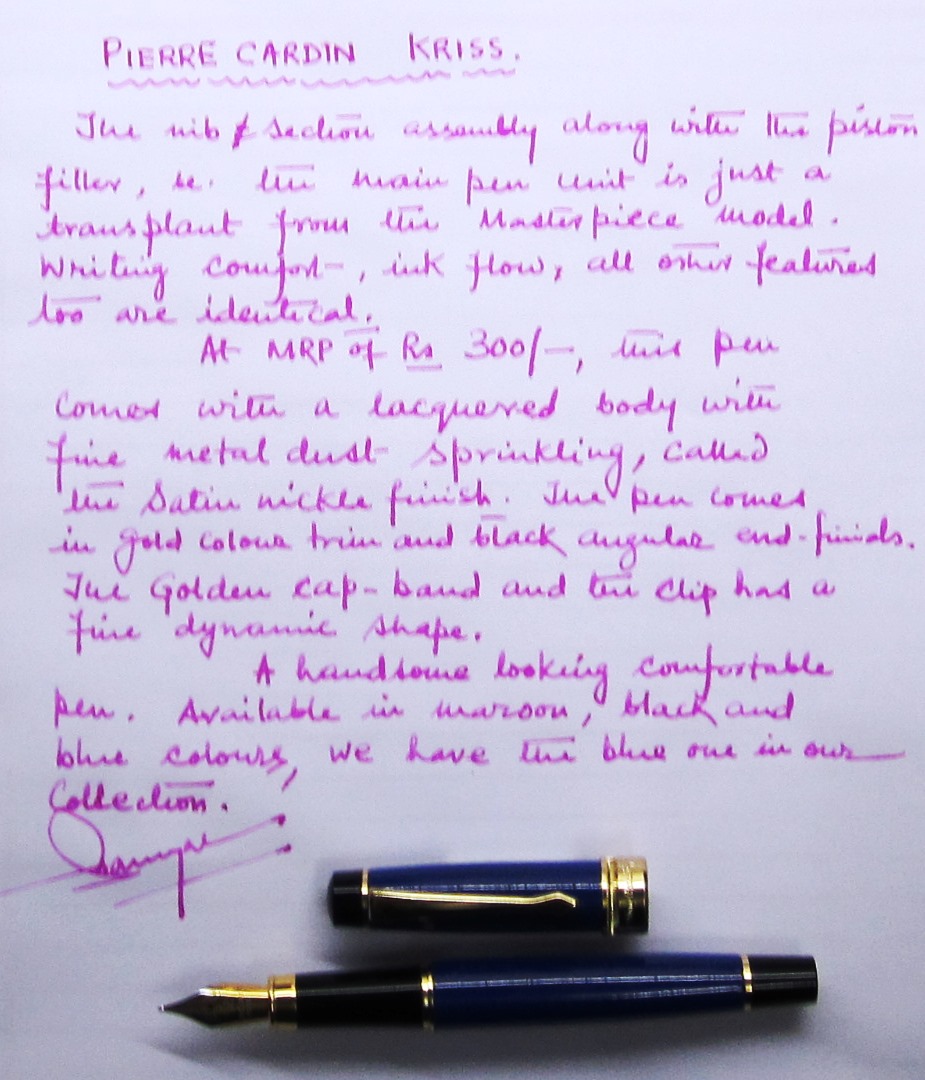 PIERRE CARDIN KRISS.
The nib & section assembly along with the piston
filler, ie. the main pen unit is just a
transplant from the Masterpiece model.
Writing comfort, ink flow, all other features
too are identical.
At MRP of Rs 300/-, this pen
comes with a lacquered body with
fine metal dust sprinkling, called
the Satin nickle finish. The pen comes
in gold colour trim and black angular end-finials.
The Golden cap-band and the clip has a
fine dynamic shape.
A handsome looking comfortable
pen. Available in maroon, black and
blue colours, we have the blue one in our
Collection.